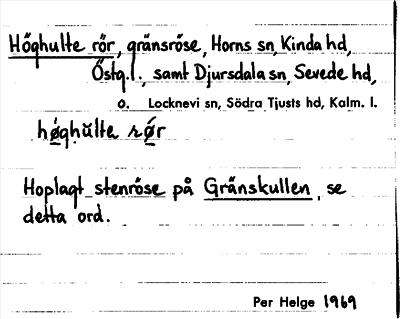 Höghulte rör, gränsröse, Horns sn, Kinda hd,
Östg. l., samt Djursdala sn, Sevede hd,
o. Locknevi sn, Södra Tjusts hd, Kalm. l.
hǿghu̇lte rǿr
Hoplagt stenröse på Gränskullen, se
detta ord.
Per Helge 1969